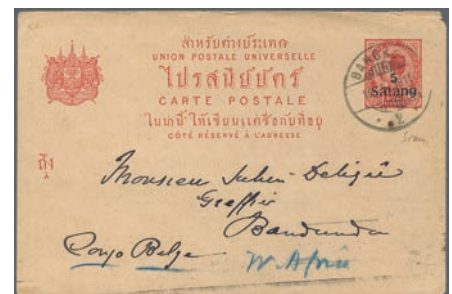 สำหรับต่างประเทศ
UNION POSTALE UNIVERSELLE
ไปรสนีย์บัตร์
CARTE POSTALE
ในหน้านี้ให้เขียนแต่ชื่อกับที่อยู่
CÔTÉ RÉSERVÉ À L'ADRESSE
5
Satang
2
Siam
ถึง
A
Monsieur
Greffier
Bandundu
Congo Belge
W. Afrie